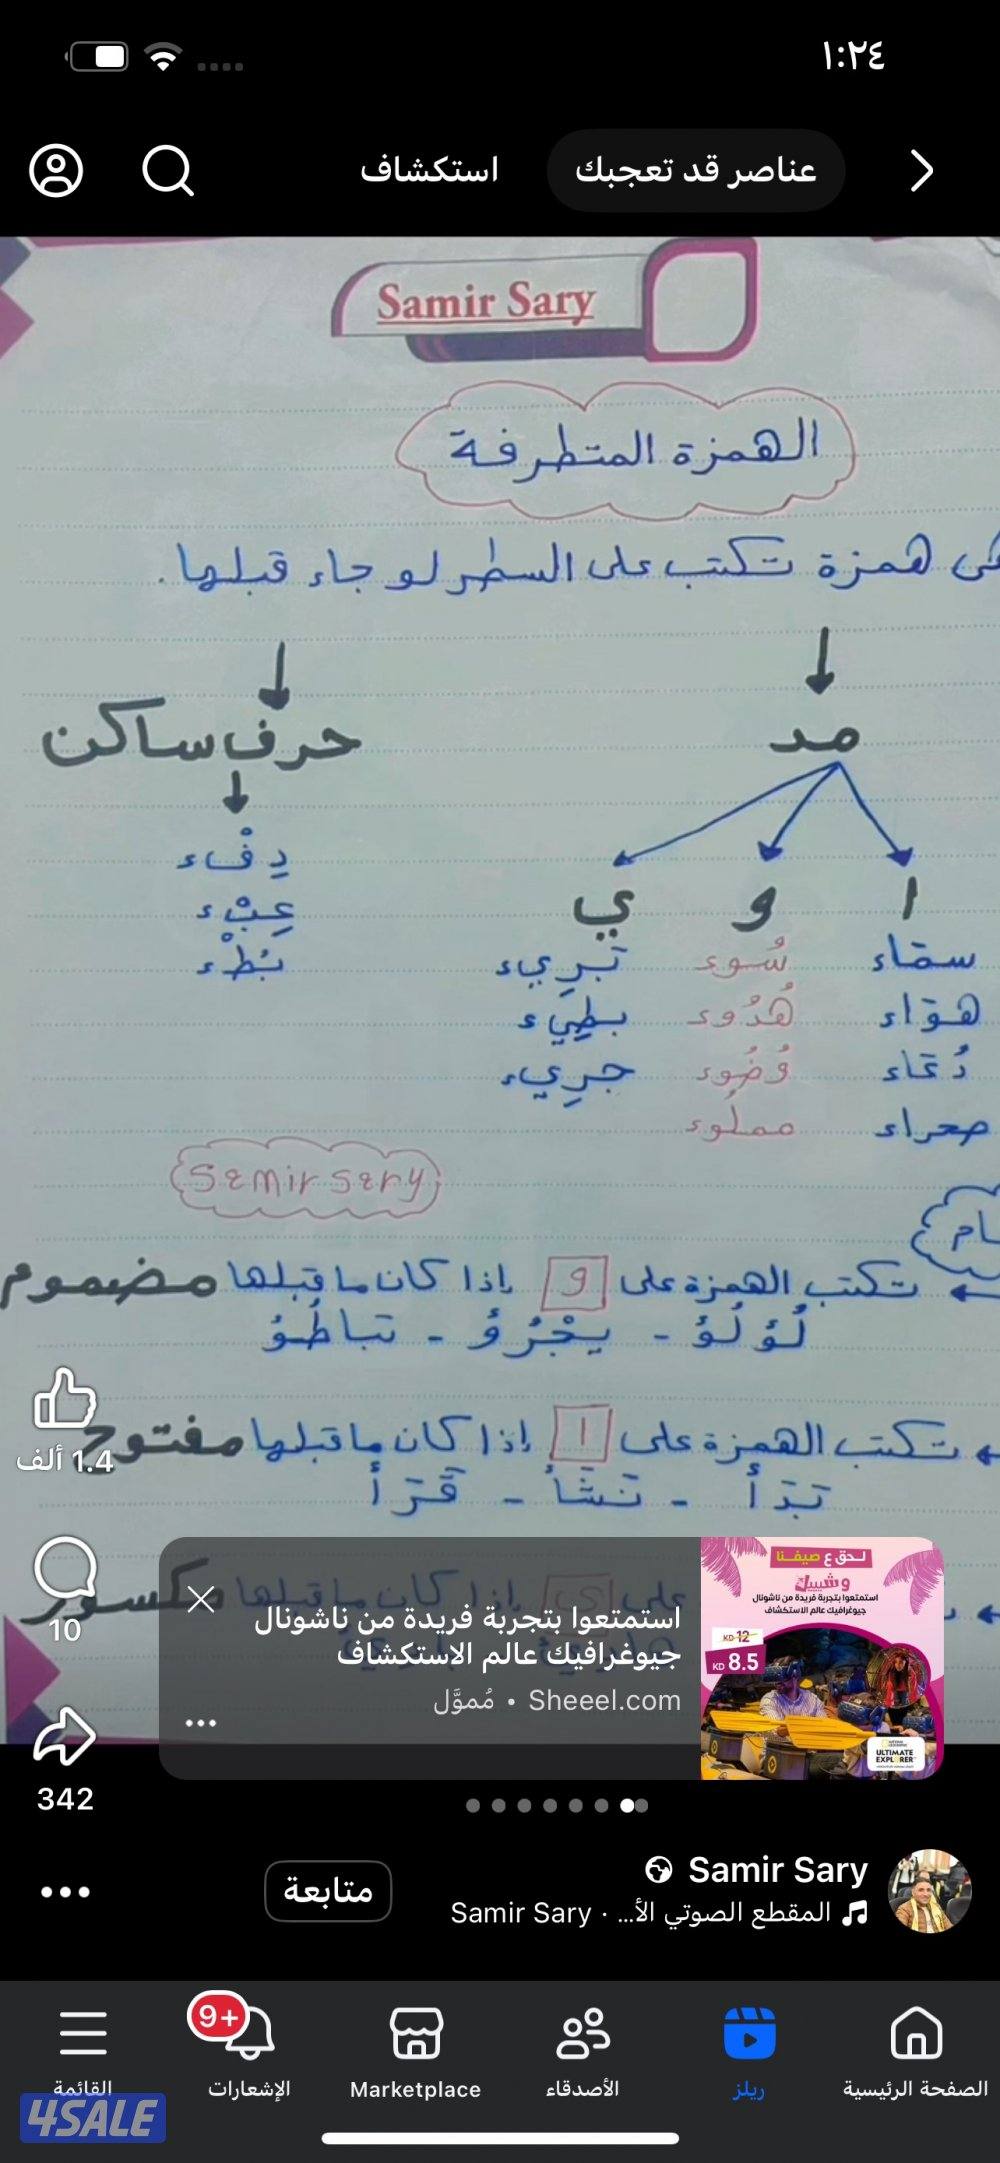 ١:٢٤
عناصر قد تعجبك
استكشاف
Samir Sary
الهمزة المتطرفة
هى همزة تكتب على السطر لو جاء قبلها.
مد
حرف ساكن
ا و ي
سمَاء سُوء بَرِيء دِفْء
هوَاء هُدُوء بطِيء عِبْء
دُعَاء وُضُوء جرِيء بُطْء
صحراء مملُوء
Samir sary
تكتب الهمزة على و إذا كان ما قبلها مضموم
لُؤلُؤ - يجْرُؤ - تباطُؤ
تكتب الهمزة على ا إذا كان ما قبلها مفتوح
بَدَأ - نَشَأ - قَرَأ
على ى إذا كان ما قبلها مكسور
1.4 ألف
10
342
استمتعوا بتجربة فريدة من ناشونال
جيوغرافيك عالم الاستكشاف
Sheeel.com • مُموَّل
لحق ع صيفنا
وشبيك
استمتعوا بتجربة فريدة من ناشونال
جيوغرافيك عالم الاستكشاف
KD 12
KD 8.5
NATIONAL GEOGRAPHIC
ULTIMATE EXPLORER
Samir Sary
المقطع الصوتي الأ... · Samir Sary
متابعة
الصفحة الرئيسية
ريلز
الأصدقاء
Marketplace
الإشعارات
9+
القائمة
4SALE